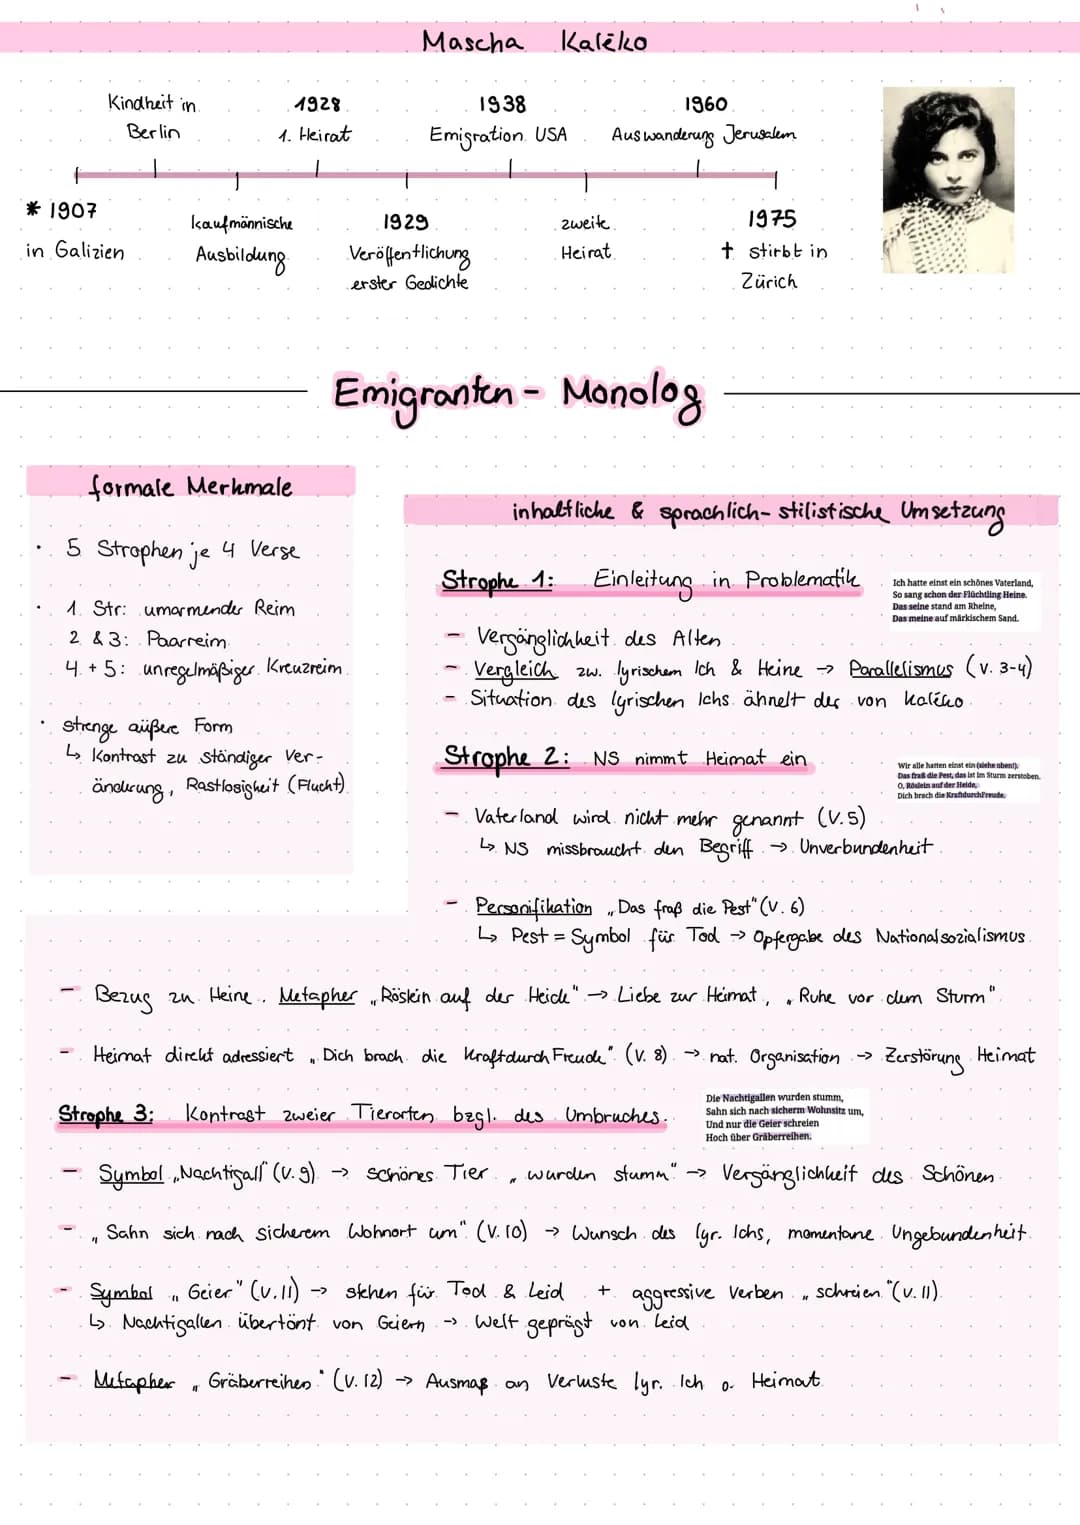 Mascha Kaléko
Kindheit in
Berlin
1928
1. Heirat
1938
Emigration USA
1960
Auswanderung Jerusalem
* 1907
in Galizien
kaufmännische
Ausbildung
1929
Veröffentlichung
erster Gedichte
zweite
Heirat
1975
† stirbt in
Zürich
Emigranten - Monolog
formale Merkmale
• 5 Strophen je 4 Verse
• 1. Str: umarmender Reim
2 & 3: Paarreim
4 + 5: unregelmäßiger Kreuzreim
• strenge äußere Form
↳ Kontrast zu ständiger Ver-
änderung, Rastlosigkeit (Flucht)
inhaltliche & sprachlich-stilistische Umsetzung
Strophe 1: Einleitung in Problematik
Ich hatte einst ein schönes Vaterland,
So sang schon der Flüchtling Heine.
Das seine stand am Rheine,
Das meine auf märkischem Sand.
- Vergänglichkeit des Alten
- Vergleich zw. lyrischem Ich & Heine → Parallelismus (V. 3-4)
- Situation des lyrischen Ichs ähnelt der von Kaléko
Strophe 2: NS nimmt Heimat ein
Wir alle hatten einst ein (siehe oben!).
Das fraß die Pest, das ist im Sturm zerstoben.
O, Röslein auf der Heide,
Dich brach die KraftdurchFreude.
- Vaterland wird nicht mehr genannt (V.5)
↳ NS missbraucht den Begriff → Unverbundenheit
- Personifikation „Das fraß die Pest" (V. 6)
↳ Pest = Symbol für Tod → Opfergabe des Nationalsozialismus
- Bezug zu Heine, Metapher „Röslein auf der Heide" → Liebe zur Heimat, „Ruhe vor dem Sturm"
- Heimat direkt adressiert „Dich brach die KraftdurchFreude" (V. 8) → nat. Organisation → Zerstörung Heimat
Strophe 3: Kontrast zweier Tierarten bzgl. des Umbruches
Die Nachtigallen wurden stumm,
Sahn sich nach sicherm Wohnsitz um,
Und nur die Geier schreien
Hoch über Gräberreihen.
- Symbol „Nachtigall" (V. 9) → schönes Tier „wurden stumm" → Vergänglichkeit des Schönen
- „Sahn sich nach sicherem Wohnort um" (V. 10) → Wunsch des lyr. Ichs, momentane Ungebundenheit
- Symbol „Geier" (V. 11) → stehen für Tod & Leid + aggressive Verben „schreien" (V. 11)
↳ Nachtigallen übertönt von Geiern → Welt geprägt von Leid
- Metapher „Gräberreihen" (V. 12) → Ausmaß an Verluste lyr. Ich o. Heimat